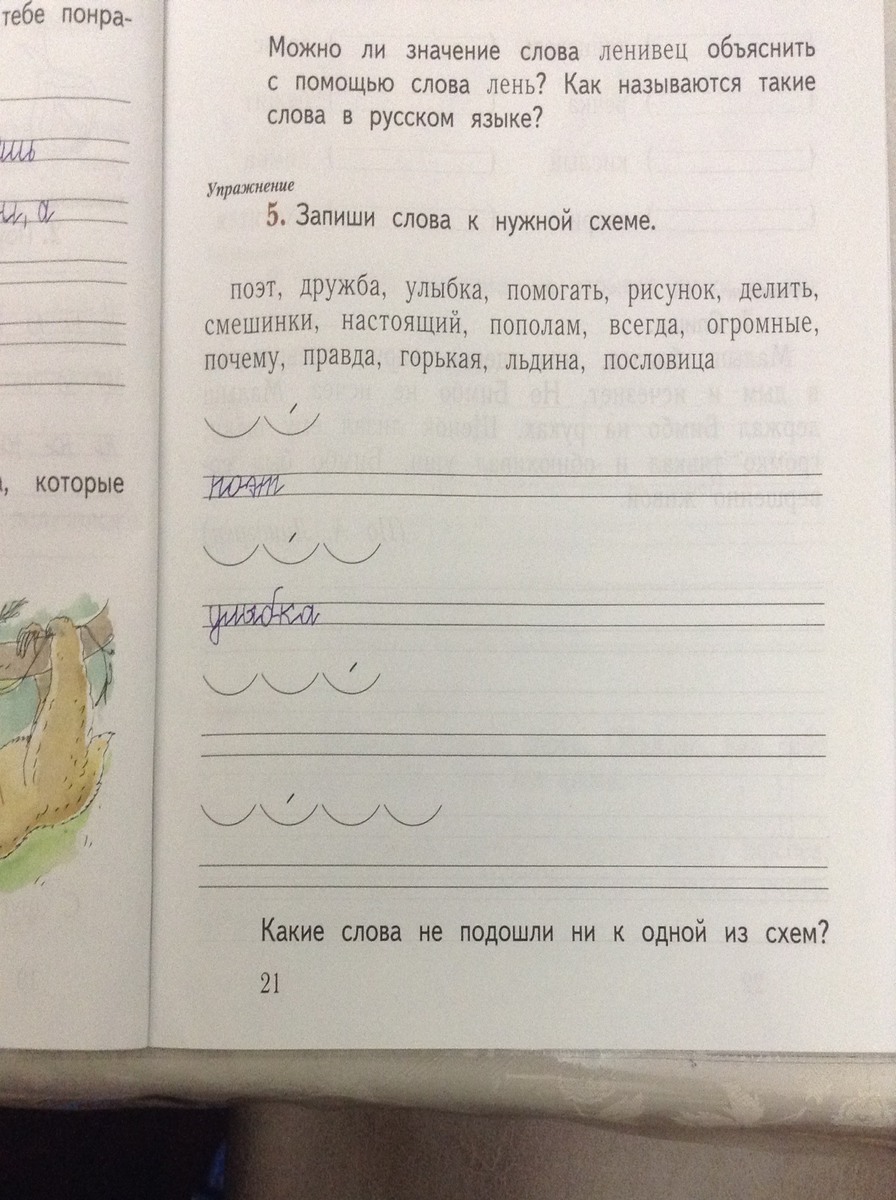 тебе понра-
а, которые
Можно ли значение слова ленивец объяснить
с помощью слова лень? Как называются такие
слова в русском языке?
Упражнение
5. Запиши слова к нужной схеме.
поэт, дружба, улыбка, помогать, рисунок, делить,
смешинки, настоящий, пополам, всегда, огромные,
почему, правда, горькая, льдина, пословица
поэт
улыбка
Какие слова не подошли ни к одной из схем?
21